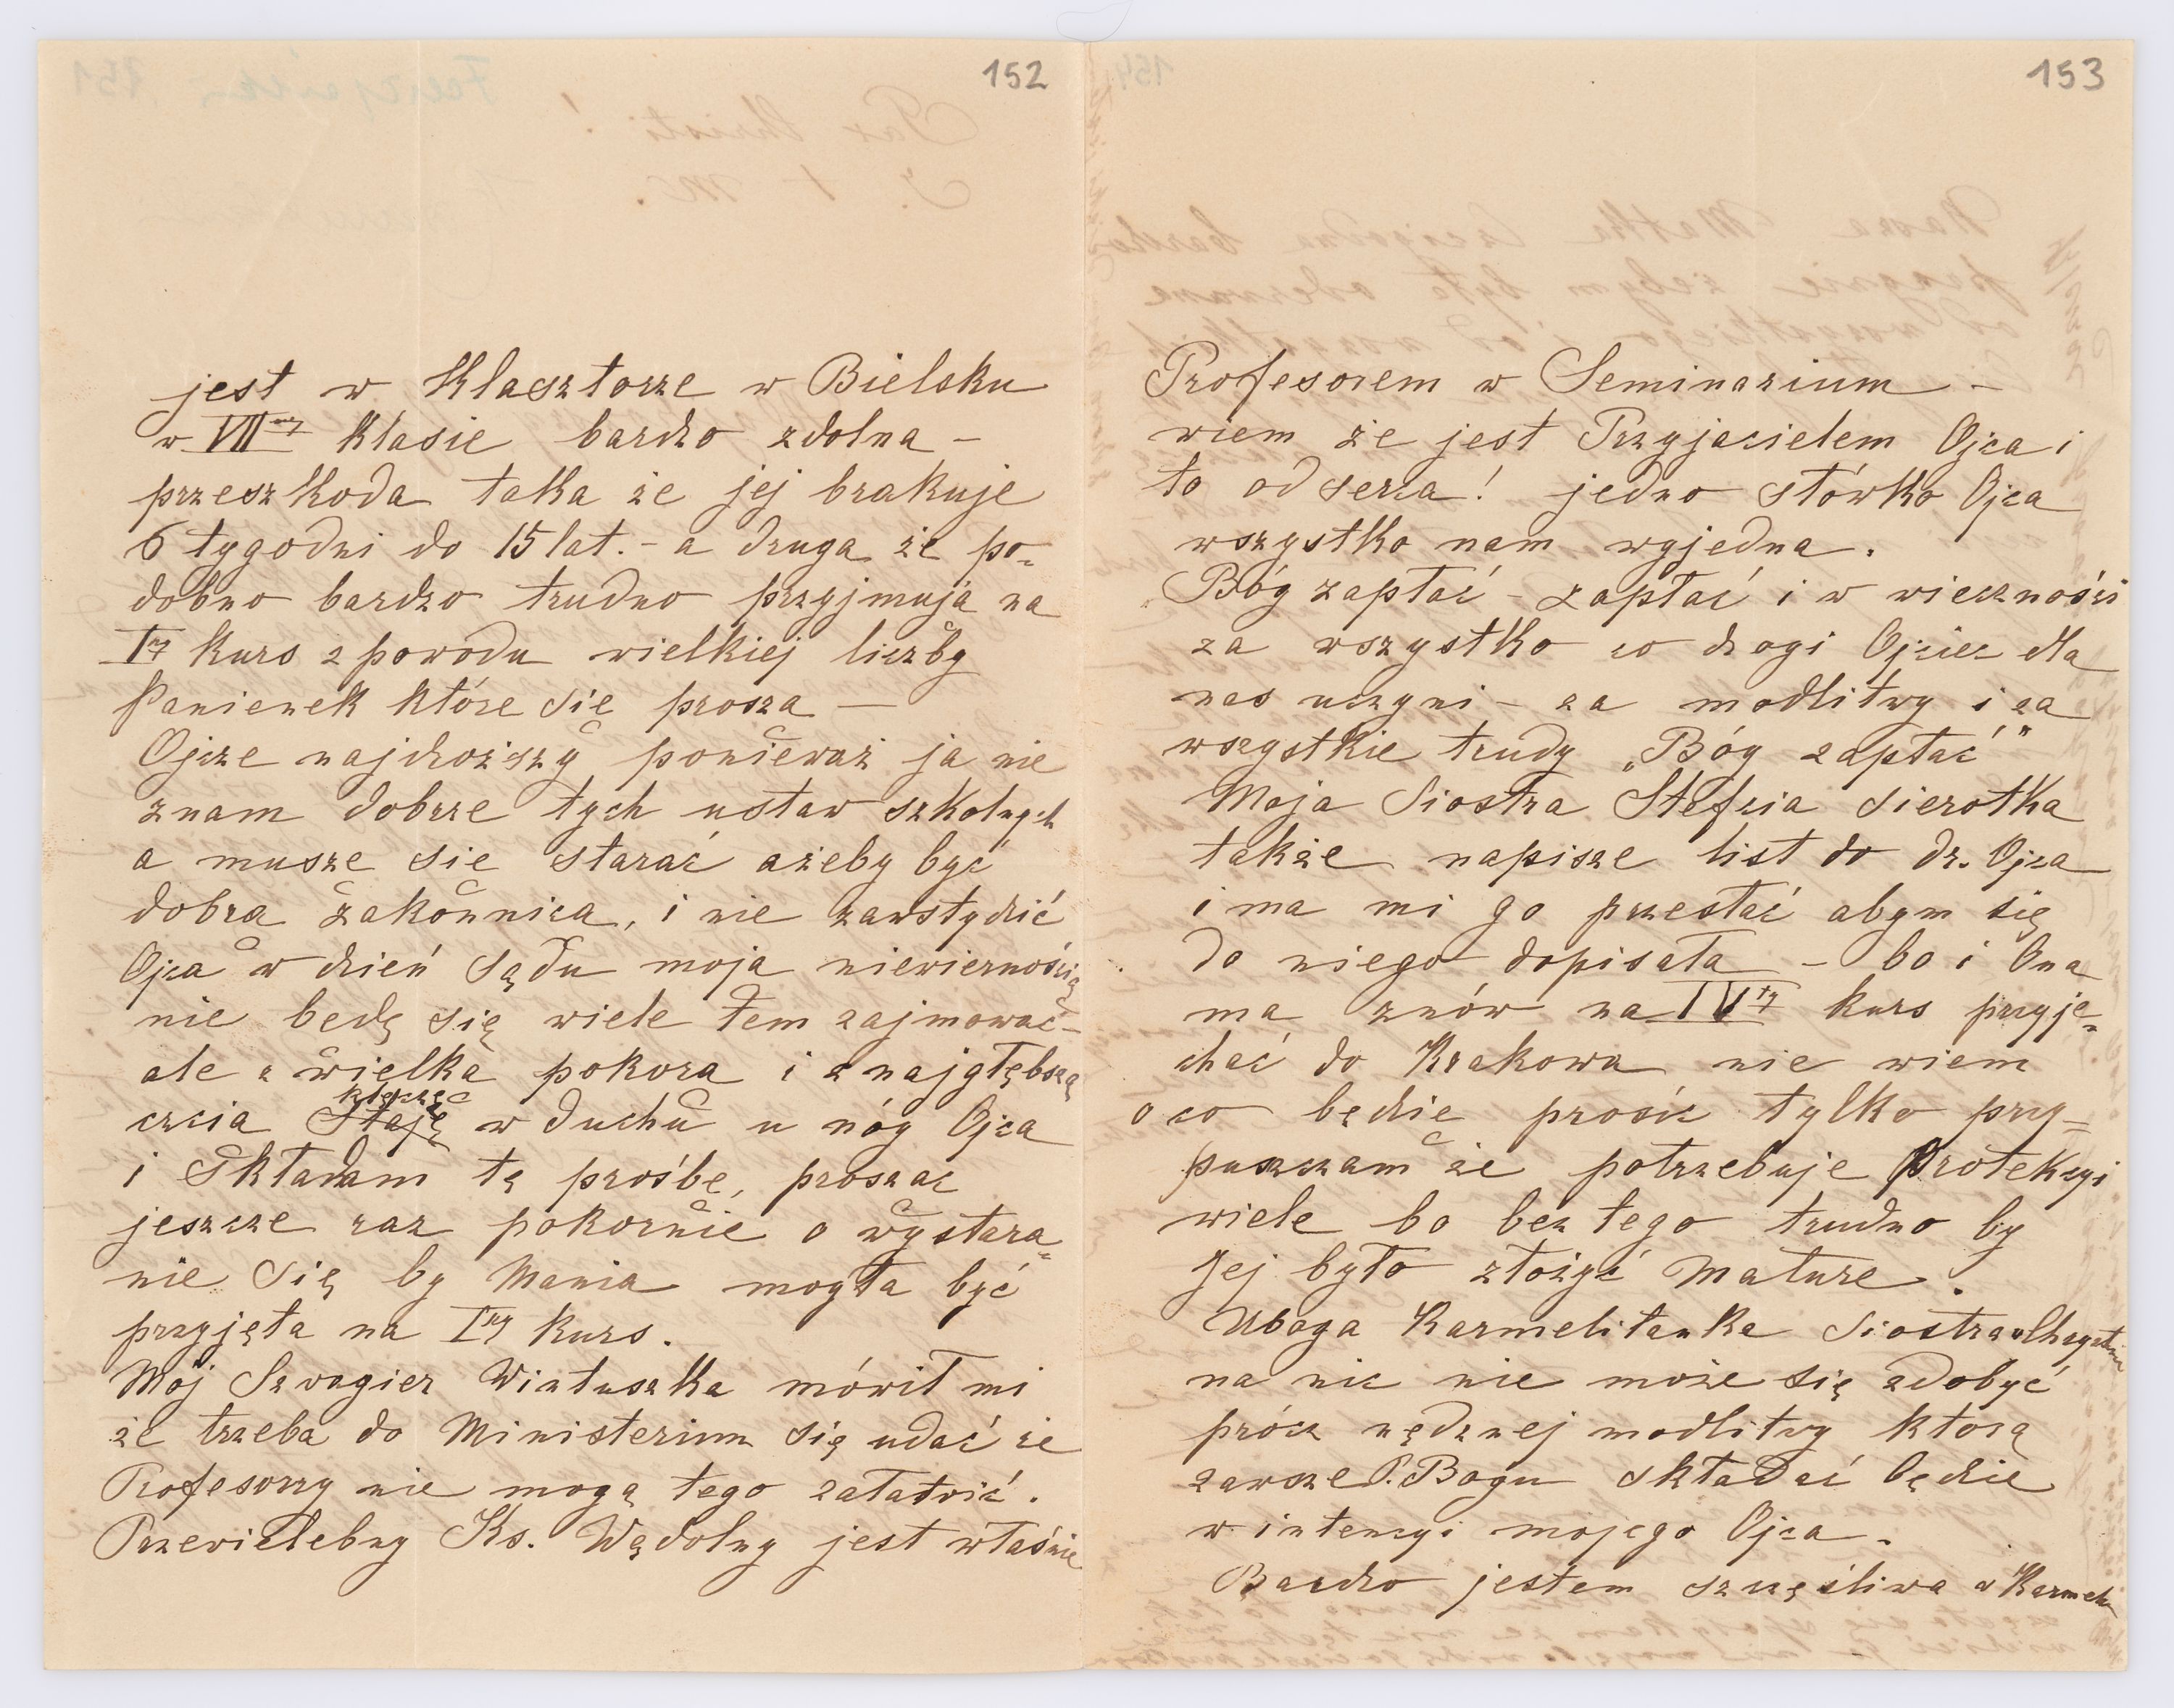 152
jest w Klasztorze w Bielsku
w VIImej Klasie bardzo zdolna -
przeszkoda taka że jej brakuje
6 tygodni do 15 lat. - a druga że po=
dobno bardzo trudno przyjmują na
Iny Kurs z powodu wielkiej liczby
Panienek które się proszą —
Ojcze najdroższy ponieważ ja nie
znam dobrze tych ustaw szkolnych
a muszę się starać ażeby być
dobrą zakonnicą, i nie zawstydzić
Ojca w dzień Sądu moją niewiernością
nie będę się wiele tem zajmować -
ale z wielką pokorą i z najgłębszą
czcią klęczę w duchu u nóg Ojca
i Składam tę prośbę, prosząc
jeszcze raz pokornie o wystara=
nie Się by Mania mogła być
przyjęta na Iny Kurs.
Mój Szwagier Wintuszka mówił mi
że trzeba do Ministerium się udać że
Profesorzy nie mogą tego załatwić.
Przewielebny Ks. Wądolny jest właśnie
153
Profesorem w Seminarium -
wiem że jest Przyjacielem Ojca i
to od serca! jedno słówko Ojca
wszystko nam wyjedna.
Bóg zapłać - zapłać i w wieczności
za wszystko co drogi Ojciec dla
nas uczyni - za modlitwy i za
wszystkie trudy „Bóg zapłać"
Moja Siostra Stefcia Sierotka
także napisze list do dr. Ojca
i ma mi go przesłać abym się
do niego dopisała - bo i Ona
ma znów na IVty kurs przyje=
chać do Krakowa nie wiem
o co będzie prosić tylko przy=
puszczam że potrzebuje Protekcyi
wiele bo bez tego trudno by
Jej było złożyć Maturę.
Uboga Karmelitanka Siostra
na nic nie może się zdobyć
prócz nędznej modlitwy którą
zawsze P. Bogu składać będzie
w intencyi mojego Ojca.
Bardzo jestem szczęśliwa w Karmelu